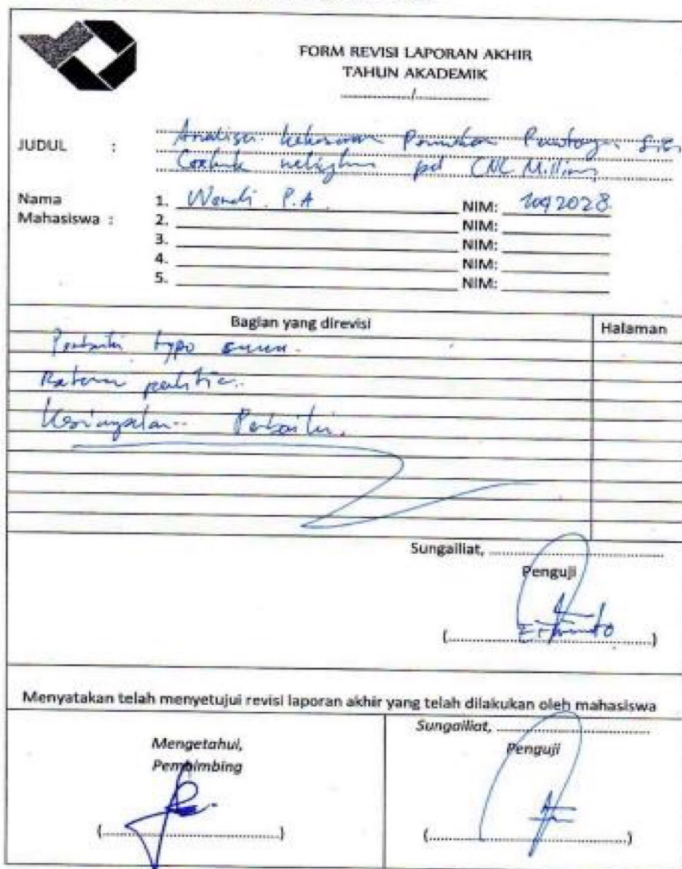 FORM REVISI LAPORAN AKHIR
TAHUN AKADEMIK
............/............
JUDUL :
Analisa kekasaran
pd CNC Milling
Nama
Mahasiswa :
1. Wandi. P.A NIM: 1042028
2. NIM:
3. NIM:
4. NIM:
5. NIM:
Bagian yang direvisi Halaman
Perbaiki typo
Kesimpulan.. Perbaiki.
Sungailiat, ............
Penguji
(............)
Menyatakan telah menyetujui revisi laporan akhir yang telah dilakukan oleh mahasiswa
Mengetahui,
Pembimbing
(............)
Sungailiat, ............
Penguji
(............)